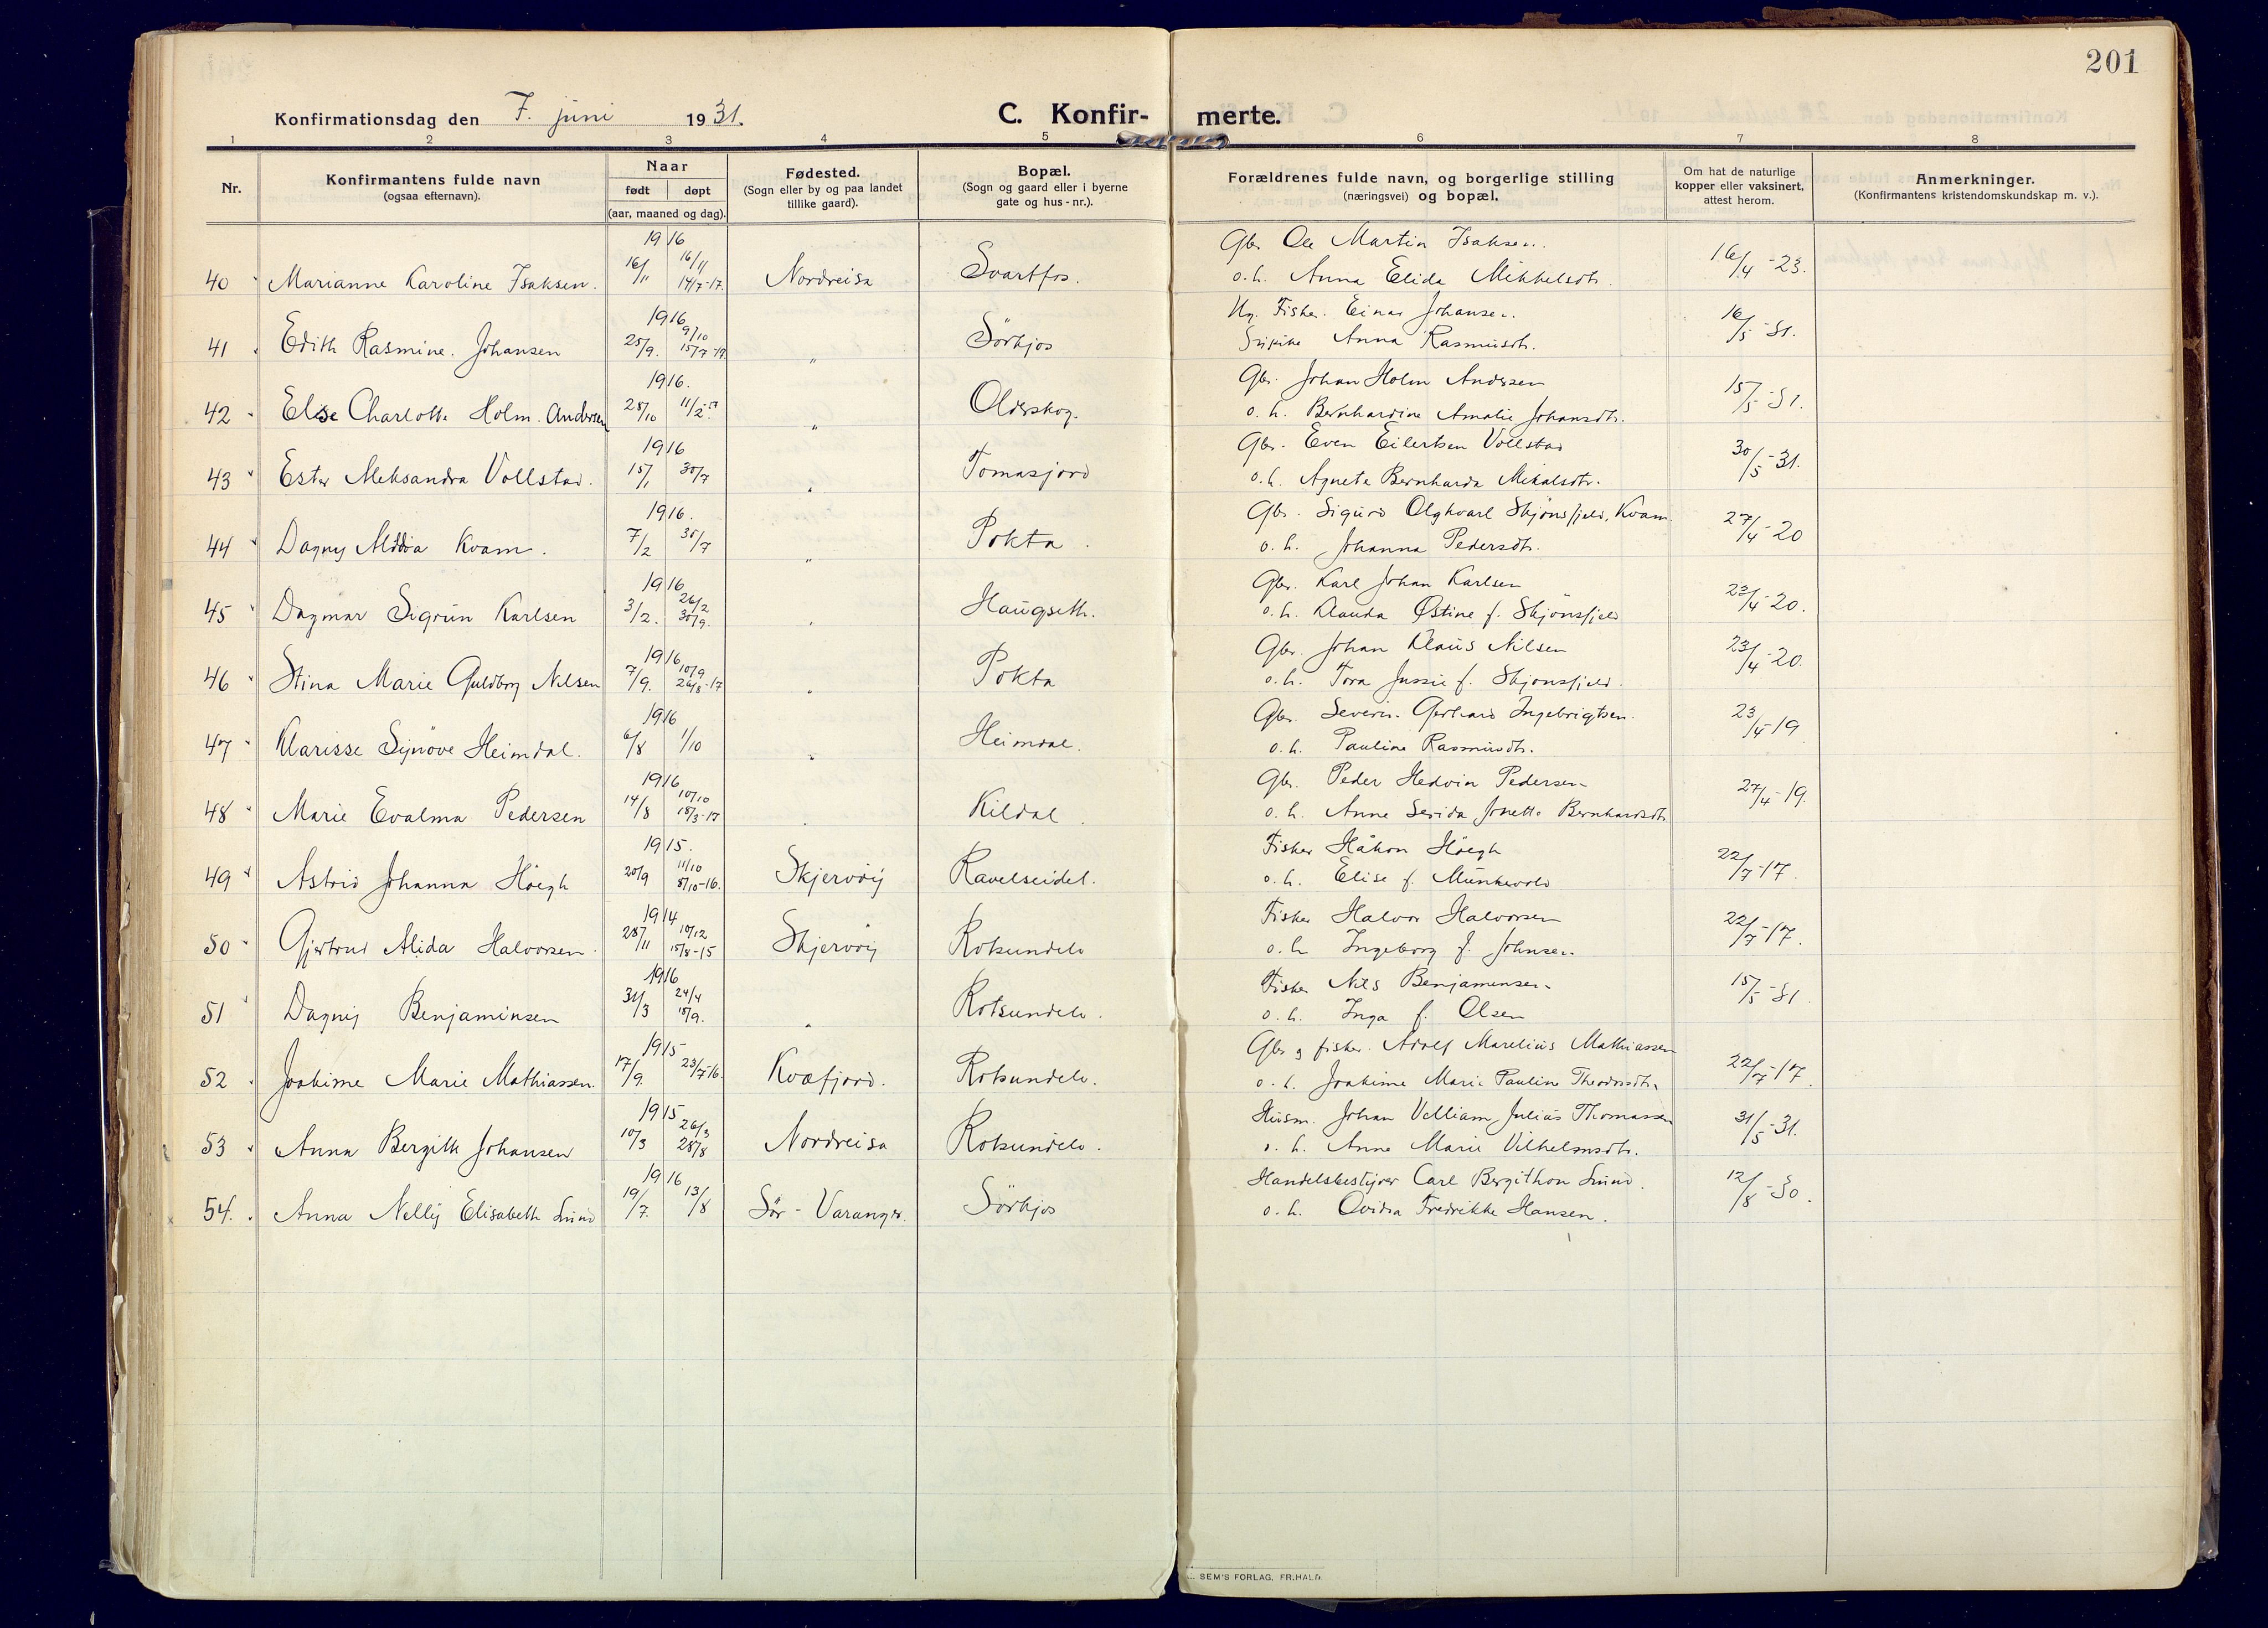 201
Konfirmationsdag den 7. juni 1931.
C. Konfir-merte.
1 2 3 4 5 6 7 8
Nr. | Konfirmantens fulde navn (ogsaa efternavn). | Naar født døpt (aar, maaned og dag). | Fødested. (Sogn eller by og paa landet tillike gaard). | Bopæl. (Sogn og gaard eller i byerne gate og hus-nr.). | Forældrenes fulde navn, og borgerlige stilling (næringsvei) og bopæl. | Om hat de naturlige kopper eller vaksinert, attest herom. | Anmerkninger. (Konfirmantens kristendomskundskap m. v.).
1916 Gbr. Ole Martin Isaksen.
40 Marianne Karoline Isaksen. 16/11 16/11 14/7-17. Nordreisa Svartfos. o.h. Anna Elida Mikkelsdtr. 16/4-23.
1916 Ug. Fisker. Einar Johansen.
41 Edith Rasmine. Johansen 25/9. 9/10 15/7-17 " Sörkjos Anna Rasmusdtr. 16/5-31.
1916. Gbr. Johan Holm Andersen
42 Elise Charlotte Holm. Andersen 28/10 11/2-17 " Olderskog. o.h. Bernhardine Amalie Johansdtr. 15/5-31.
1916 Gbr. Even Eilertsen Vollstad
43 Ester Aleksandra Vollstad. 15/1 30/7 " Tomasjord o.h. Agnete Bernharda Mikalsdtr. 30/5-31.
1916. Gbr. Sigurd Olghvarl Skjönsfjeld, Kvam.
44 Dagny Kvam. 7/2 30/7 " Pokta. o.h. Johanna Pedersdtr. 27/4-20
1916 Gbr. Karl Johan Karlsen
45 Dagmar Sigrun Karlsen 3/2. 26/2 30/9. " Haugseth. o.h. Klauda Østine f. Skjönsfjeld 23/4-20.
1916 Gbr. Johan Klaus Nilsen
46 Stina Marie Guldborg Nilsen 7/9. 10/9 26/8-17 " Pokta o.h. Tora Jussie f. Skjönsfjeld. 23/4-20.
1916 Gbr. Severin Gerhard Ingebrigtsen.
47 Klarisse Synöve Heimdal. 6/8 1/10 " Heimdal. o.h. Pauline Rasmusdtr. 23/4-19
1916 Gbr. Peder Hedvin Pedersen
48 Marie Evalma Pedersen 14/8 10/10 18/3-17 " Kildal. o.h. Anne Serida Jonette Bernhardsdtr 27/4-19.
1915. Fisker Håkon Höegh
49 Astrid Johanna Höegh 20/9 11/10 8/10-16. Skjervöy Ravelseidet. o.h. Elise f. Munkevold 22/7-17.
1914 Fisker Halvor Halvorsen
50 Gjertrud Alida Halvorsen. 28/11 10/12 15/8-15 Skjervöy Rotsundelv o.h Ingeborg f. Johnsen. 22/7-17.
1916 Fisker Nils Benjaminsen
51 Dagny Benjaminsen 31/3 24/4 18/9. " Rotsundelv. o.h. Inga f. Olsen 15/5-31.
1915 Gbr. og fisker. Adolf Marelius Mathiassen
52 Joakime Marie Mathiassen. 17/9. 23/7-16. Kvæfjord. Rotsundelv. o.h. Joakime Marie Pauline Theodorsdtr. 22/7-17.
1915 Husm. Johan Velliam Julius Thomassen
53 Anna Bergith Johansen 10/3 26/3 28/8 Nordreisa Rotsundelv. o.h. Anne Marie Vilhelmsdtr. 31/5-31.
1916 Handelsbestyrer Carl Bergithon Lund.
54. Anna Nelly Elisabeth Lund 19/7. 13/8 Sör-Varanger. Sörkjos o.h. Ovidia Fredrikke Hansen. 12/8-30.
SEM'S FORLAG, FR.HALD.